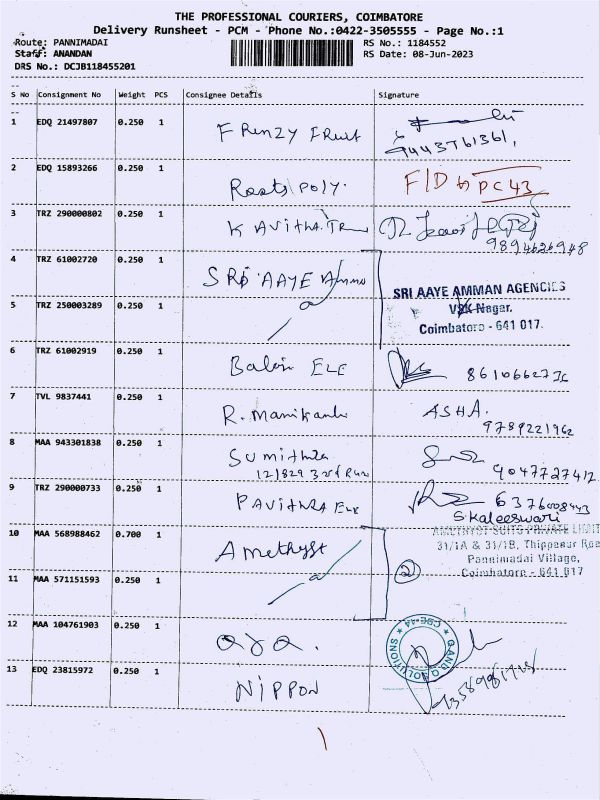 THE PROFESSIONAL COURIERS, COIMBATORE
Delivery Runsheet - PCM - Phone No.:0422-3505555 - Page No.:1
Route: PANNIMADAI RS No.: 1184552
Staff: ANANDAN RS Date: 08-Jun-2023
DRS No.: DCJB118455201
S No Consignment No Weight PCS Consignee Details Signature
1 EDQ 21497807 0.250 1 Frenzy Fruit
9443761361,
2 EDQ 15893266 0.250 1 Roots poly. F/D to PC 43
3 TRZ 290000802 0.250 1 KAVITHA.
9894626948
4 TRZ 61002720 0.250 1 SRI AAYE Amman
SRI AAYE AMMAN AGENCIES
VSK Nagar,
Coimbatore - 641 017.
5 TRZ 250003289 0.250 1
6 TRZ 61002919 0.250 1 ELE
7 TVL 9837441 0.250 1 R. ASHA.
9789221962
8 MAA 943301838 0.250 1 Sumithra
9047727412
9 TRZ 290000733 0.250 1 PAVITHRA ELE 6376008443
S.Kaleeswari
10 MAA 568988462 0.700 1 Amethyst
AMETHYST SUITS PRIVATE LIMIT
31/1A & 31/1B, Thippanur Roa
Pannimadai Village,
Coimbatore - 641 017
2
11 MAA 571151593 0.250 1
12 MAA 104761903 0.250 1
G AND Q SOLUTIONS
CBE-44
13 EDQ 23815972 0.250 1 NIPPON